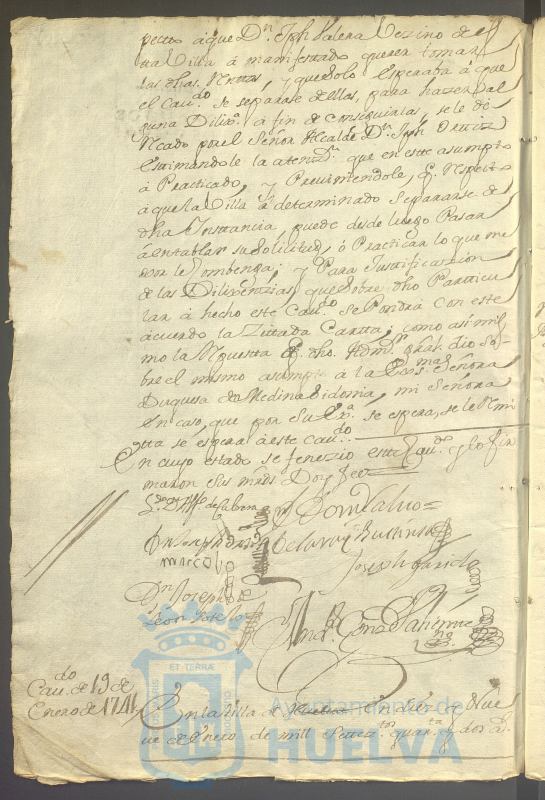 pecto á que Dn. Jph Valera Vezino de
esta Villa á manifestado querer tomar
las dhas. Rentas, y que solo esperaba á que
el Cavdo. se separase de ellas, para hazer al
guna Dilixa. á fin de conseguirlas, se le dé
Recado por el Señor Alcalde Dn. Jph Ortiz
Estimandole la atenzn. que en este asumpto
á Practicado, y Previniendole, q. Respecto
á que la Villa á determinado Separarse de
dha Instancia, puede desde luego Pasar
á entablar su Solicitud, ó Practicar lo que me
xor le Combenga; y Para Justificazion
de las Dilixencias, que sobre dho Particu
lar á hecho este Cavdo. se Pondrá con este
acuerdo la Zitada Cartta, como asi mis
mo la Repuesta q. dho. Admr. Gral. dio so
bre el mismo asumpto á la Exma. Señora
Duquesa de Medina Sidonia, mi Señora
en caso, que por Su Exa. se espera, se le Remi
tta se espera á este Cavdo.
En cuyo estado se fenezio este Cavdo. y lo fir
maron sus mrds. Doy fee
Dn Joseph
Joseph Garcia
Dn. Joseph
Leon
Cavdo. de 19 de
Enero de 1741
En la Villa de Huelva en diez y Nue
ve de Enero de mill Settezos. quarta. y dos as.
ET TERRÆ
Ayuntamiento de
HUELVA